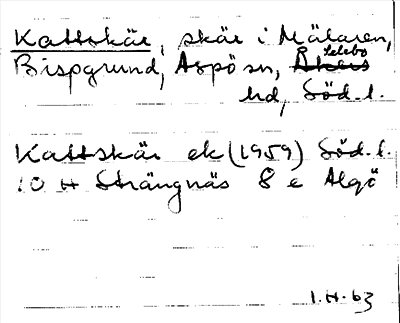 Kattskär, skär i Mälaren,
Bispgrund, Aspö sn, Åkers Selebo
hd, Söd.l.
Kattskär ek (1959) Söd.l.
10 H Strängnäs 8 e Algö
1.H.63